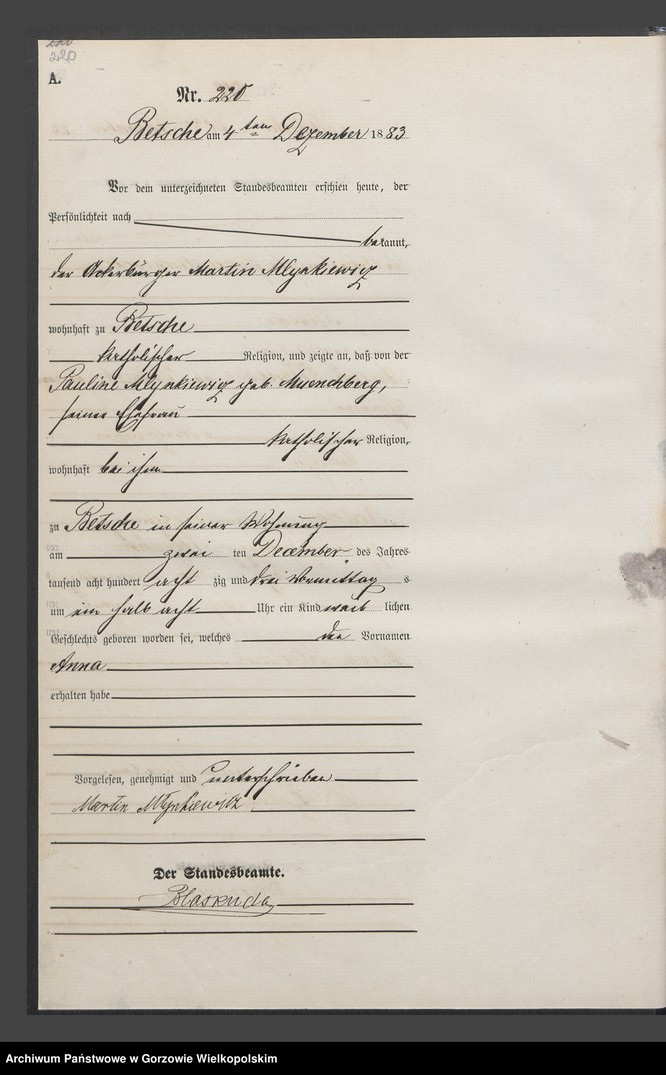 220
A.
Nr. 220
Betsche am 4ten Dezember 1883
Vor dem unterzeichneten Standesbeamten erschien heute, der
Persönlichkeit nach
bekannt,
der Ackerbürger Martin Mlynkiewicz
wohnhaft zu Betsche
katholischer Religion, und zeigte an, daß von der
Pauline Mlynkiewicz geb. Muenchberg,
seiner Ehefrau
katholischer Religion,
wohnhaft bei ihm
zu Betsche in seiner Wohnung
am zwei ten December des Jahres
tausend acht hundert acht zig und drei Vormittag s
um ein halb acht Uhr ein Kind weib lichen
Geschlechts geboren worden sei, welches den Vornamen
Anna
erhalten habe
Vorgelesen, genehmigt und unterschrieben
Martin Mlynkiewitz
Der Standesbeamte.
Archiwum Państwowe w Gorzowie Wielkopolskim